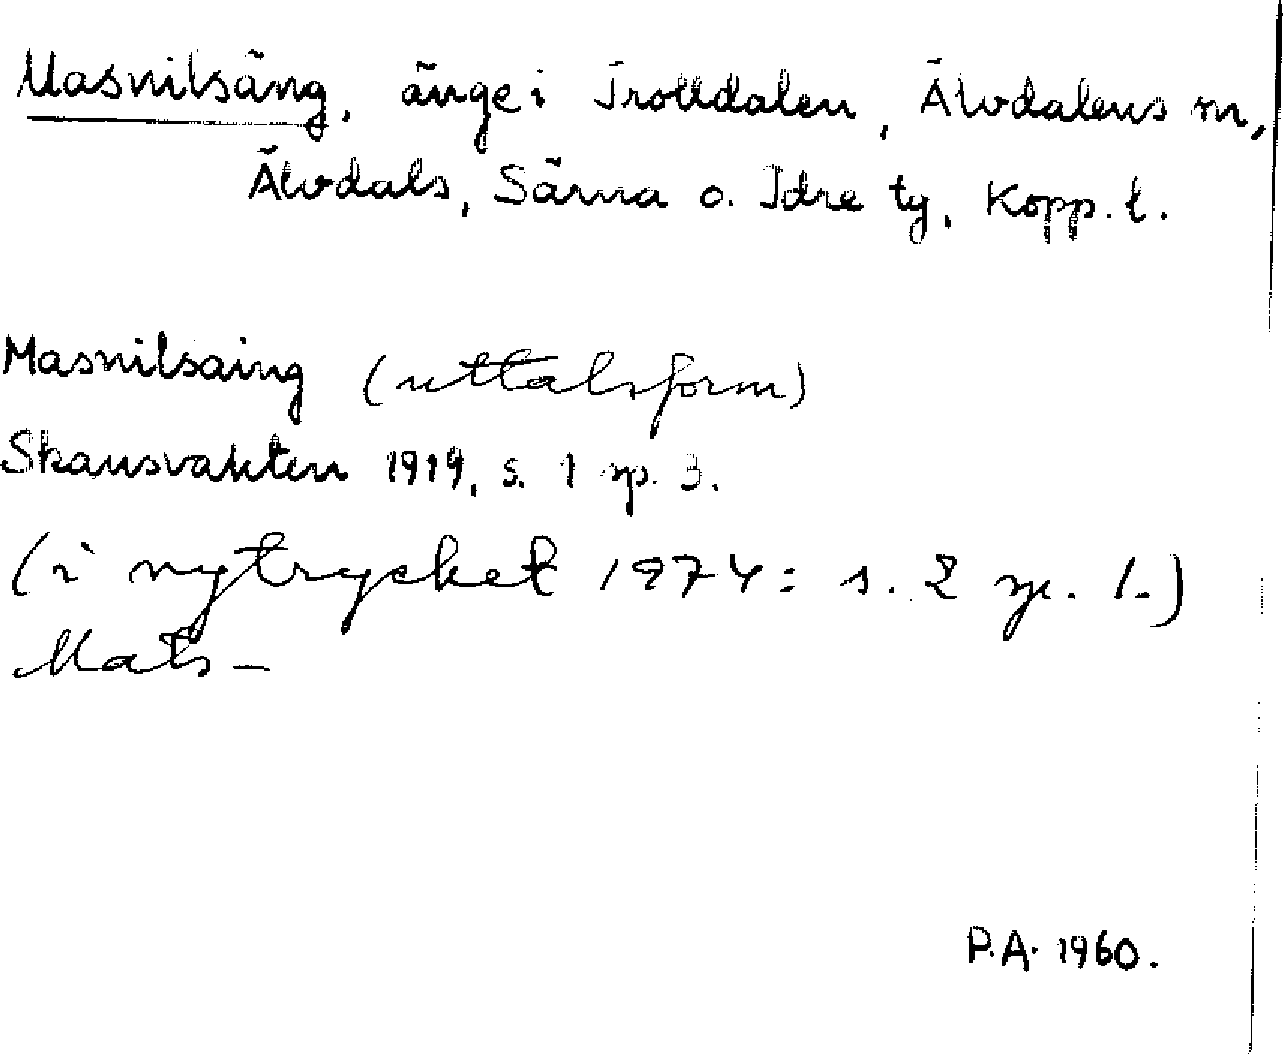 Masnilsäng, änge i Trolldalen, Älvdalens sn,
Älvdals, Särna o. Idre tg, Kopp. l.
Masnilsaing (uttalsform)
Skansvakten 1919, s. 1 sp. 3.
(i nytrycket 1974: s. 2 sp. 1.)
Mats-
P.A. 1960.